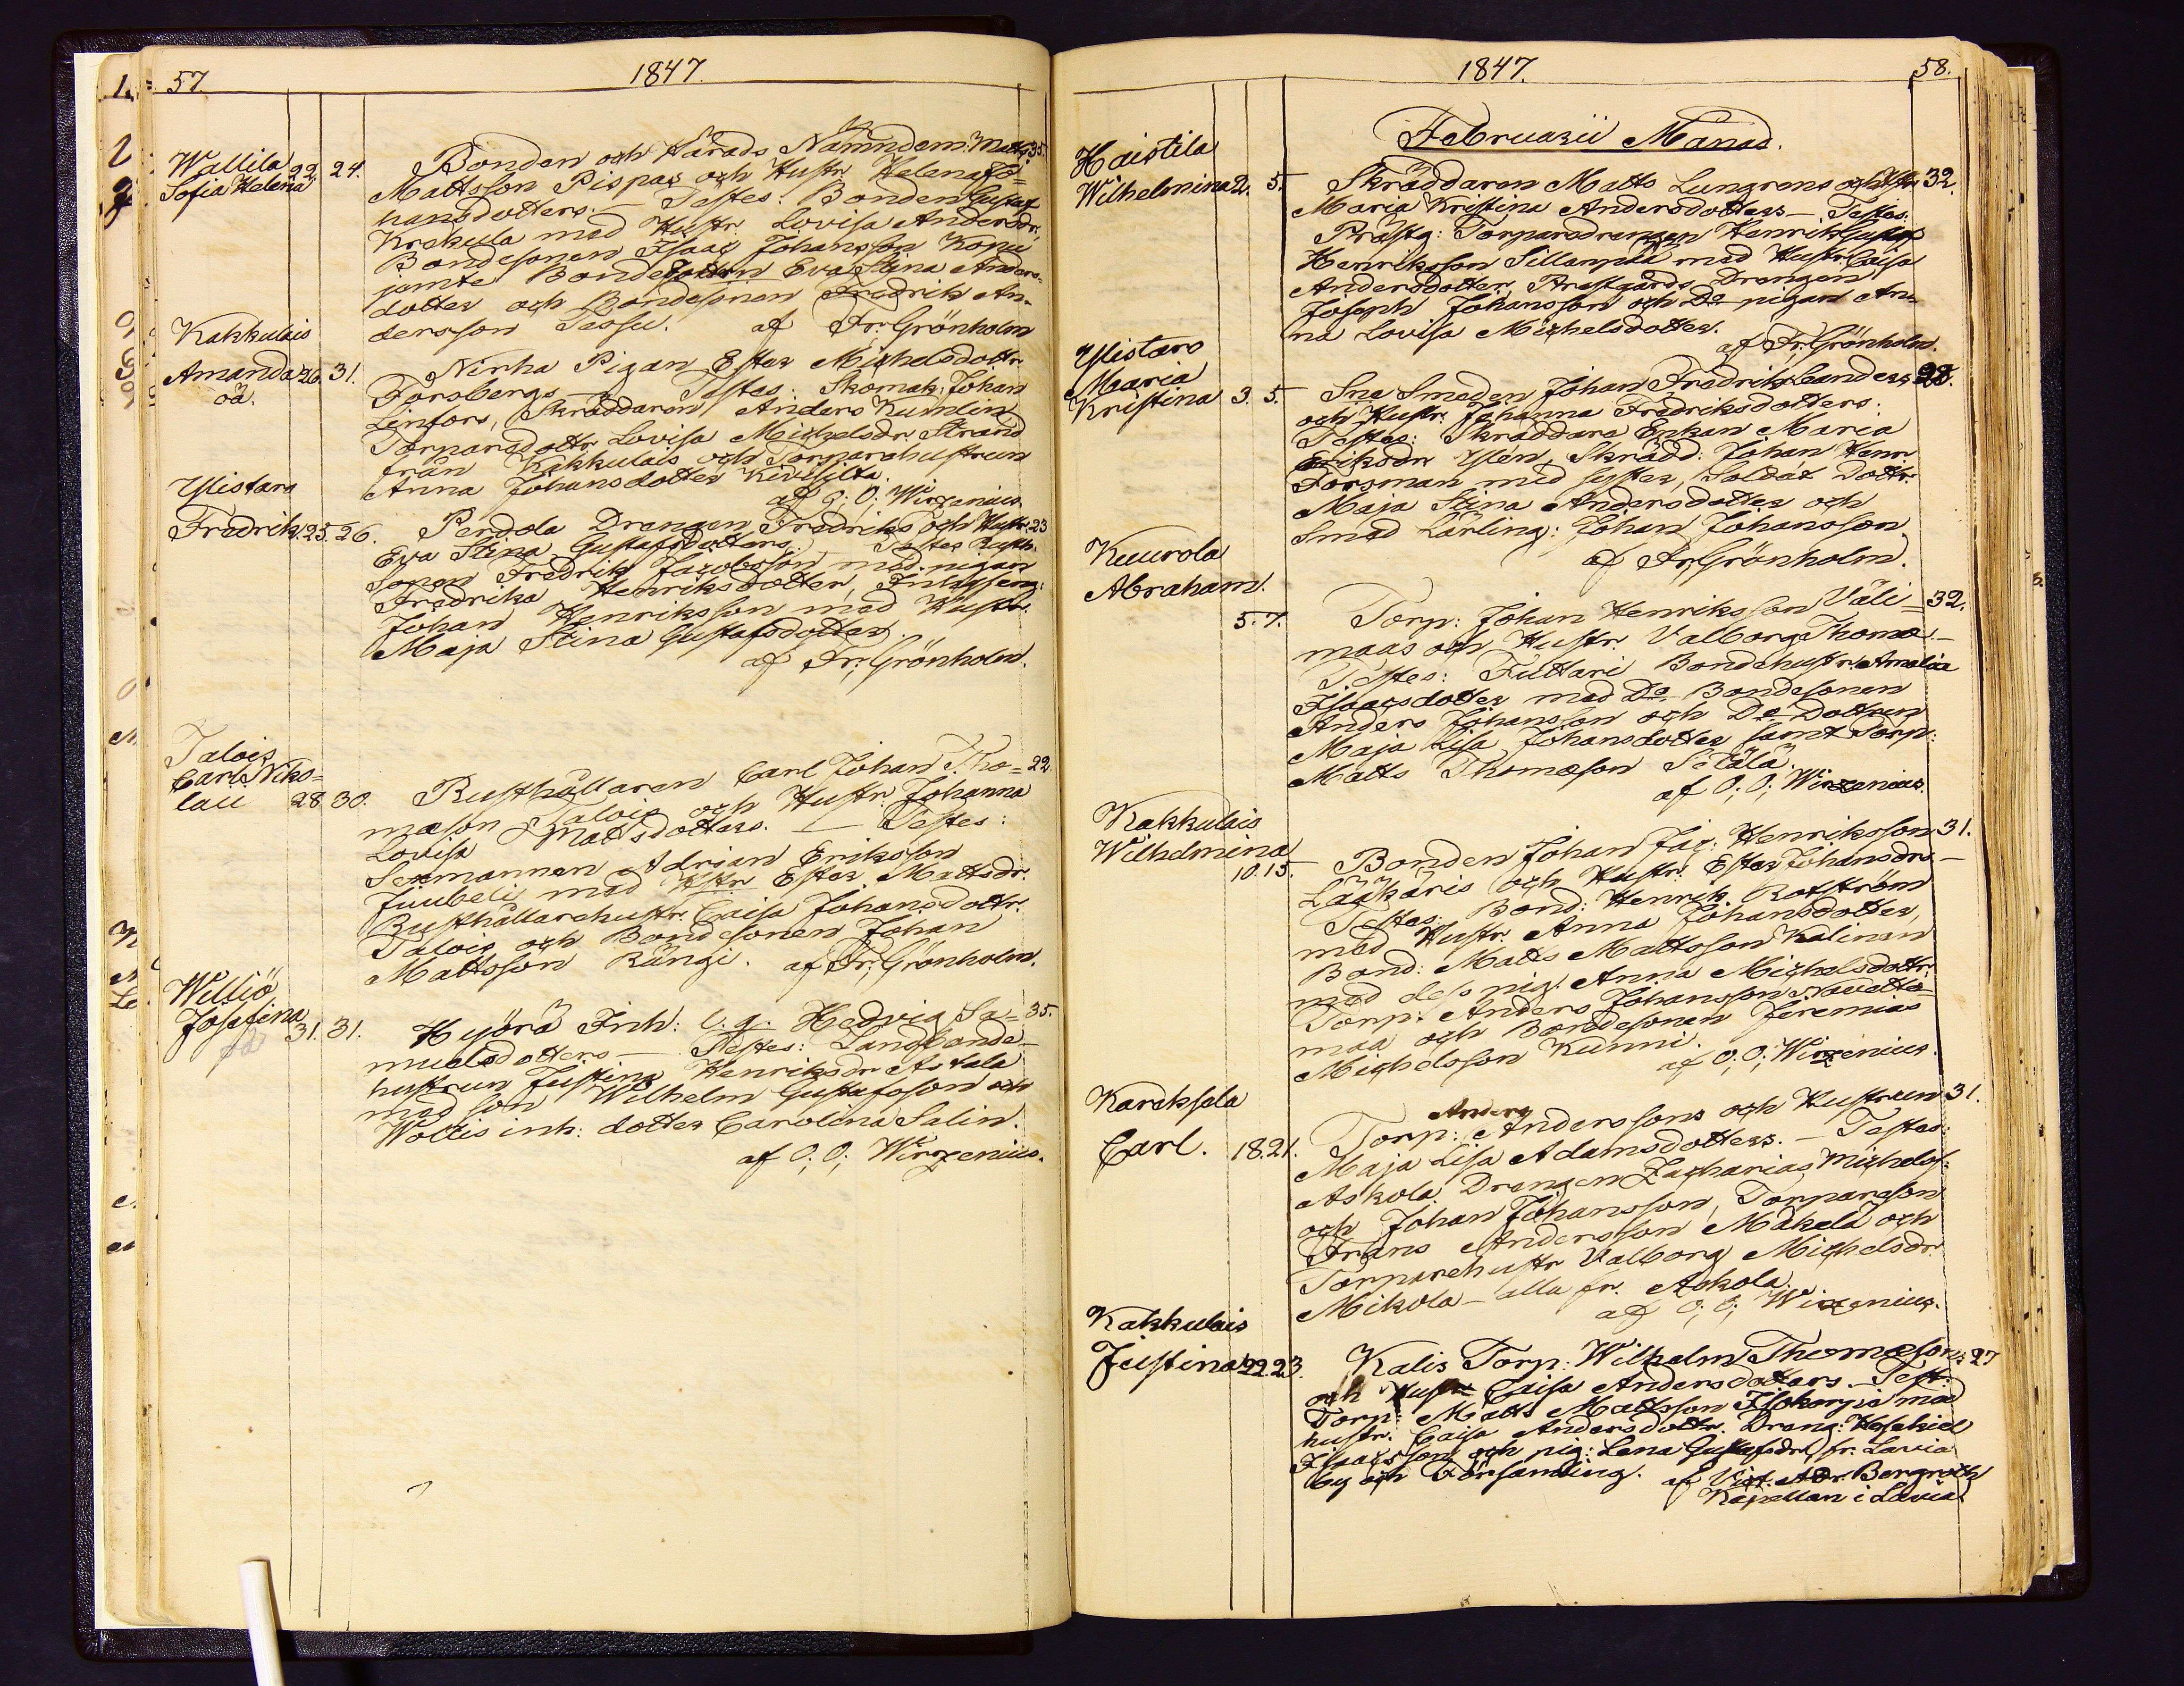 57.
1847.
Wallila
Sofia Helena 22. 24.
Bonden och Härads Nämndem: Matts 35.
Mattsson Pispas och Hustr. Helena Jo=
hansdotters. — Testes: Bonden Gustaf
Krekula med Hustr. Lovisa Andersdr.
Bondesonen Isaac Johansson Kopu
jämte Bondedottrn Eva Stina Anders=
dotter och Bondesonen Fredrik An-
dersson Tassu. af Fr: Grönholm
Kakkulais
Amanda 26. 31.
oä.
Nirha Pigan Ester Michelsdottr
Forsbergs — Testes: Skomak: Johan
Linfors, Skräddaren Anders Kumlin
Torparedottr. Lovisa Michelsdr. Strand
från Kakkulais och Torparehustrun
Anna Johansdotter Kivisilta.
af O; O; Wirzenius.
Ylistaro
Fredrik. 25. 26.
Pendola Drengen Fredriks och Hustr. 23
Eva Stina Gustafsdotters. — Testes Rusth.
Sonen Fredrik Jacobsson med pigan
Fredrika Henriksdotter, Inhysseng:
Johan Henriksson med Hustr.
Maja Stina Gustafsdotter.
af Fr: Grönholm.
Talois
Carl Niko=
lau 28. 30.
Rusthållaren Carl Johan Tho= 22.
mæson Talois och Hustr. Johanna
Lovisa Mattsdotters. — Testes:
Sexmannen Adrian Eriksson
Juubeli med Hstr Ester Mattsdr.
Rusthållarehustr. Caisa Johansdottr.
Talois och Bondesonen Johan
Mattsson Rängi. af Fr; Grönholm.
Williö
Josefina 31. 31.
oä
Hyörä Inh: l. q. Hedvig Sa= 35.
muelsdotters — Testes: Landbonde-
hustrun Justina Henriksdr Astala
med son Wilhelm Gustafsson och
Wollis inh: dotter Carolina Salin.
af O; O; Wirzenius.
1847.
58.
Februarii Månad.
Haistila
Wilhelmina 2. 5.
Skräddaren Matts Lungrens och Hstr 32.
Maria Kristina Andersdotters — Testes.
Prästg: Torparedrengen Henrik Gustaf
Henriksson Sillanpää med Hustr. Caisa
Andersdotter, Prestgårds Drengen
Joseph Johansson och Do pigan An-
na Lovisa Michelsdotter.
af Fr; Grönholm.
Ylistaro
Maria
Kristina 3. 5.
Sne Smeden Johan Fredrik Landers 28.
och Hustr. Johanna Fredriksdotters.
Testes: Skräddare Enkan Maria
Eriksdr Ylén, Skrädd: Johan Henr
Forsman med syster, Soldat Dottr.
Maja Stina Andersdotter och
Smed Lärling: Johan Johansson.
af Fr; Grönholm.
Kuurola
Abraham.
5. 7.
Torp: Johan Henriksson Väli= 32.
maas och Hustr. Valborg Thomæ.—
Testes: Tultari Bondehustr. Amalia
Isaacsdotter med Do Bondesonen
Anders Johansson och Do Dottren
Maja Lisa Johansdotter samt Torp:
Matts Thomæson Sötälä.
af O; O; Wirzenius.
Kakkulais
Wilhelmina
10. 15.
Bonden Johan Jac: Henriksson 31.
Lääkäris och Hustr. Ester Johansdr. —
Testes: Bond: Henrik Rotström
med Hustr. Anna Johansdotter,
Bond: Matts Mattsson Kalinen
med dess pig: Anna Michelsdottr.
Torp: Anders Johansson
maa och Bondesonen Jeremias
Michelsson Kunni.
af O; O; Wirzenius.
Kareksela
Carl. 18. 21.
Anders
Torp: Anderssons och Hustrun 31.
Maja Lisa Adamsdotters. — Testes:
Askola Drengen Zacharias Michelss:
och Johan Johansson, Torpareson
Frans Andersson Mäkelä och
Torparehustr Valborg Michelsdr.
Mikola — alla fr. Askola.
af O; O; Wirzenius.
Kakkulais
Justina 22. 23.
Kalis Torp: Wilhelm Thomæsons 27
och Hustr Caisa Andersdotters. Test:
Torp: Matts Mattsson Isokorpi med
hustr: Caisa Andersdottr. Dreng: Hesekiel
Isaacsson och pig: Lena Gustafsdr, fr. Lavia
by och Församling. af Vict. Adr. Bergroth
Kapellan i Lavia.